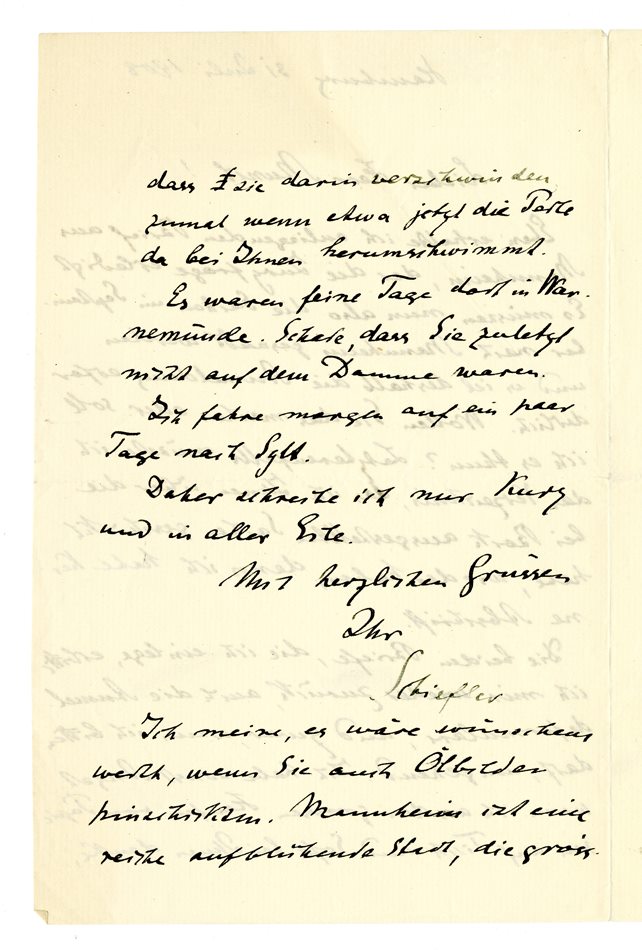 dass sie darin verschwinden
zumal wenn etwa jetzt die Post
da bei Ihnen herumschwimmt.
Es waren feine Tage dort in War-
nemünde. Schade, dass Sie zuletzt
nicht auf dem Damme waren.
Ich fahre morgen auf ein paar
Tage nach Sylt.
Daher schreibe ich nur kurz
und in aller Eile.
Mit herzlichen Grüssen
Ihr
Schiefler
Ich meine, es wäre wünschens
werth, wenn Sie auch Ölbilder
hinschicken. Mannheim ist eine
reiche aufblühende Stadt, die gröss-